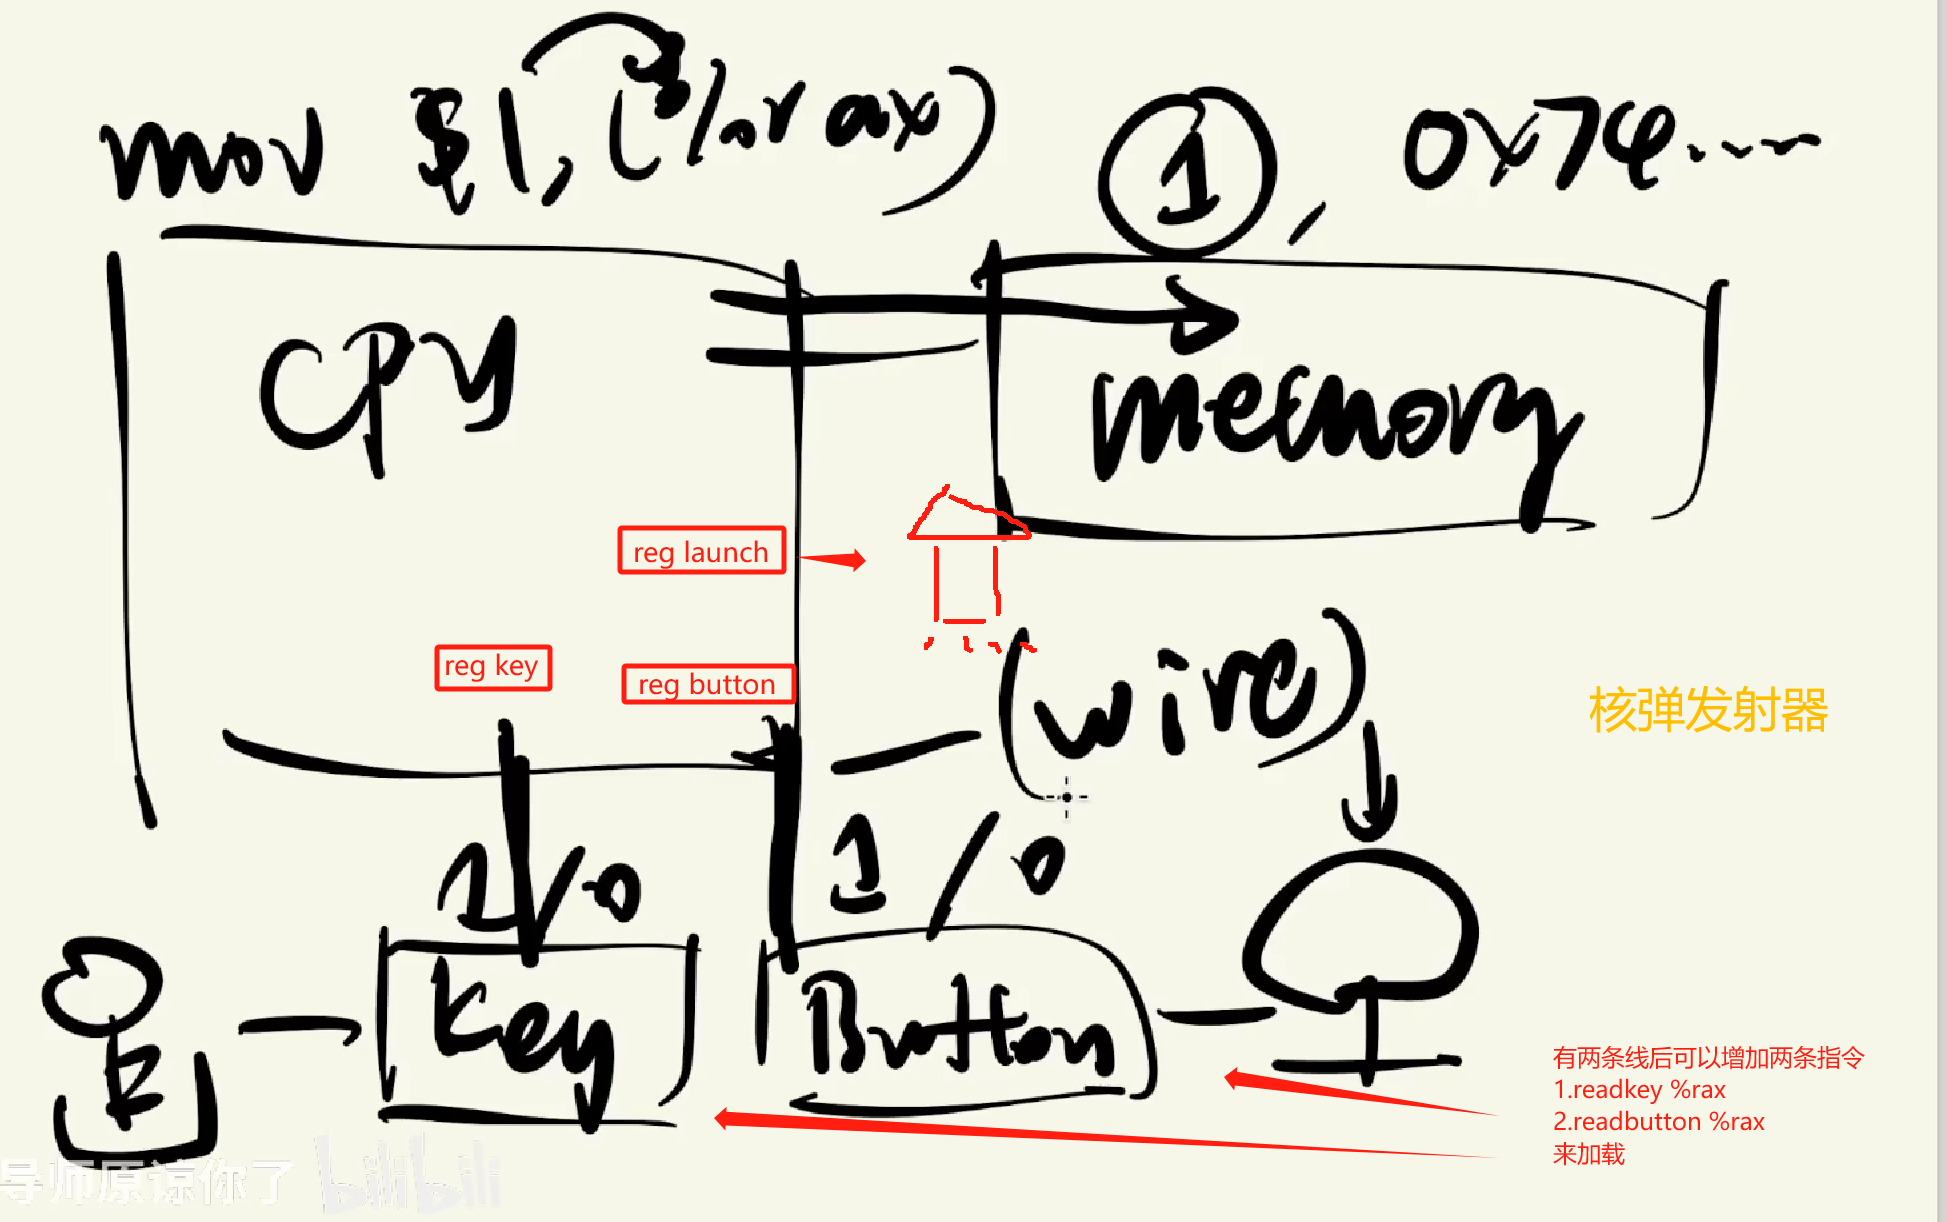 mov $1, (%rax)
1, 0x74....
CPU
memory
reg launch
reg key
reg button
(wire)
核弹发射器
1/0
1/0
Key
Button
有两条线后可以增加两条指令
1.readkey %rax
2.readbutton %rax
来加载
导师原谅你了
bilibili